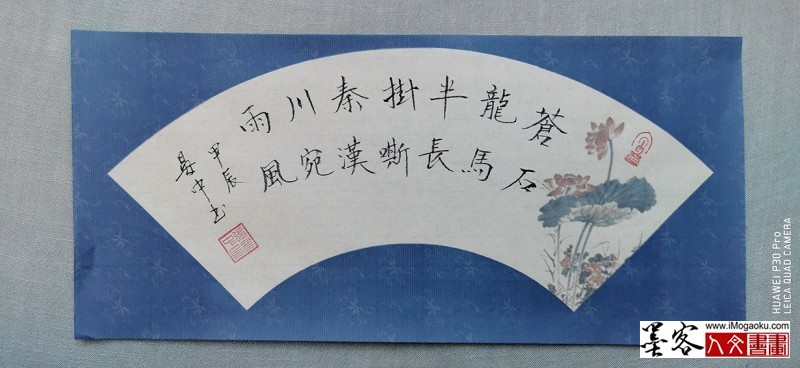 蒼龍半掛秦川雨
石馬長嘶漢宛風
甲辰
中书
HUAWEI P30 Pro
LEICA QUAD CAMERA
墨客
www.iMogaoku.com
人文書畫